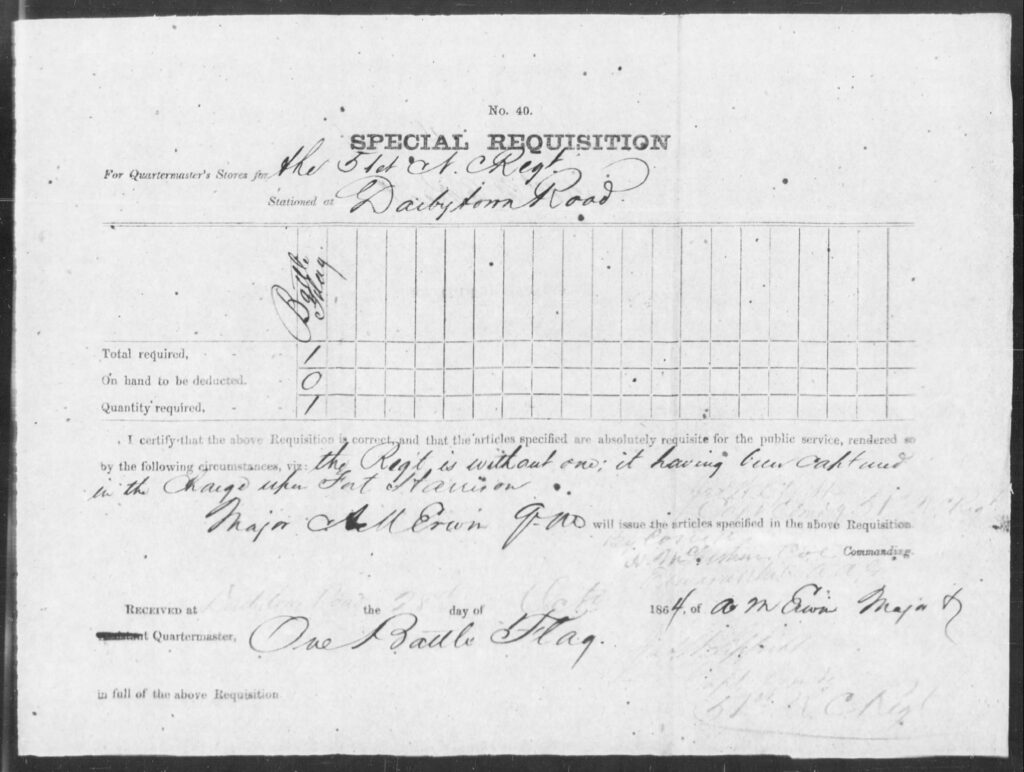 No. 40.
SPECIAL REQUISITION
For Quartermaster's Stores for the 51st N. C. Regt.
Stationed at Darbytown Road.
Battle Flag.
Total required, 1
On hand to be deducted. 0
Quantity required, 1
I certify that the above Requisition is correct, and that the articles specified are absolutely requisite for the public service, rendered so
by the following circumstances, viz: the Regt is without one; it having been captured
in the Charge upon Fort Harrison.
Major A M Erwin will issue the articles specified in the above Requisition
Commanding.
RECEIVED at the day of Oct 1864. of A M Erwin Major &
Quartermaster, One Battle Flag.
in full of the above Requisition
51st N. C. Regt